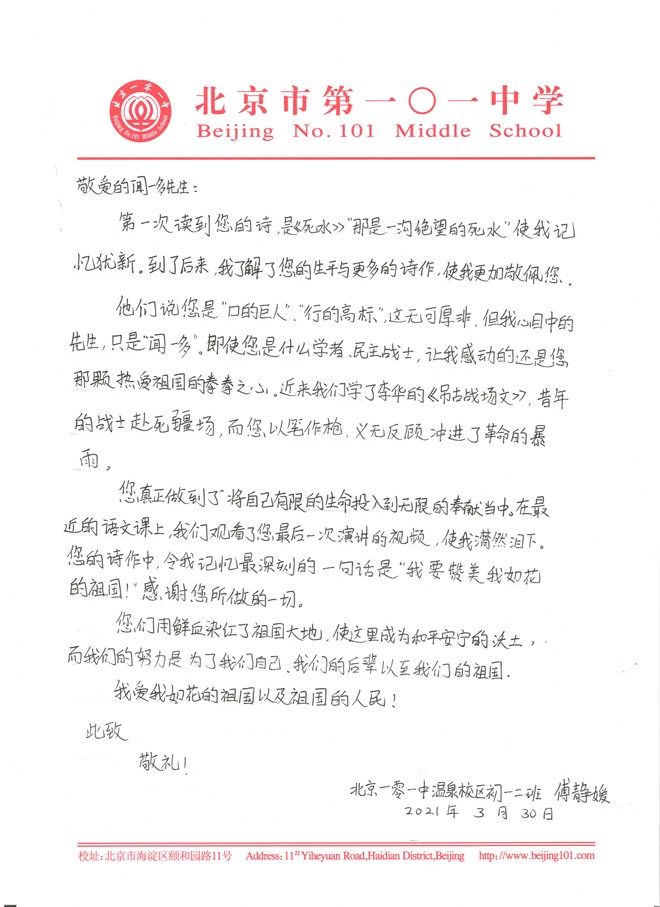 北京一零一中
Beijing No.101 Middle School
北京市第一〇一中学
Beijing No. 101 Middle School
敬爱的闻一多先生：
第一次读到您的诗，是《死水》“那是一沟绝望的死水”使我记
忆犹新。到了后来，我了解了您的生平与更多的诗作，使我更加敬佩您．
他们说您是“口的巨人”、“行的高标”，这无可厚非，但我心目中的
先生，只是“闻一多”。即使您是什么学者、民主战士，让我感动的还是您
那颗热爱祖国的拳拳之心。近来我们学了李华的《吊古战场文》，昔年
的战士赴死疆场，而您以笔作枪，义无反顾冲进了革命的暴
雨。
您真正做到了“将自己有限的生命投入到无限的奉献当中。在最
近的语文课上，我们观看了您最后一次演讲的视频，使我潸然泪下。
您的诗作中，令我记忆最深刻的一句话是“我要赞美我如花
的祖国！”感谢您所做的一切。
您们用鲜血染红了祖国大地，使这里成为和平安宁的沃土，
而我们的努力是为了我们自己、我们的后辈以至我们的祖国．
我爱我如花的祖国以及祖国的人民！
此致
敬礼！
北京一零一中温泉校区初一二班 傅静媛
2021年 3月30日
校址：北京市海淀区颐和园路11号 Address: 11# Yiheyuan Road,Haidian District,Beijing http://www.beijing101.com